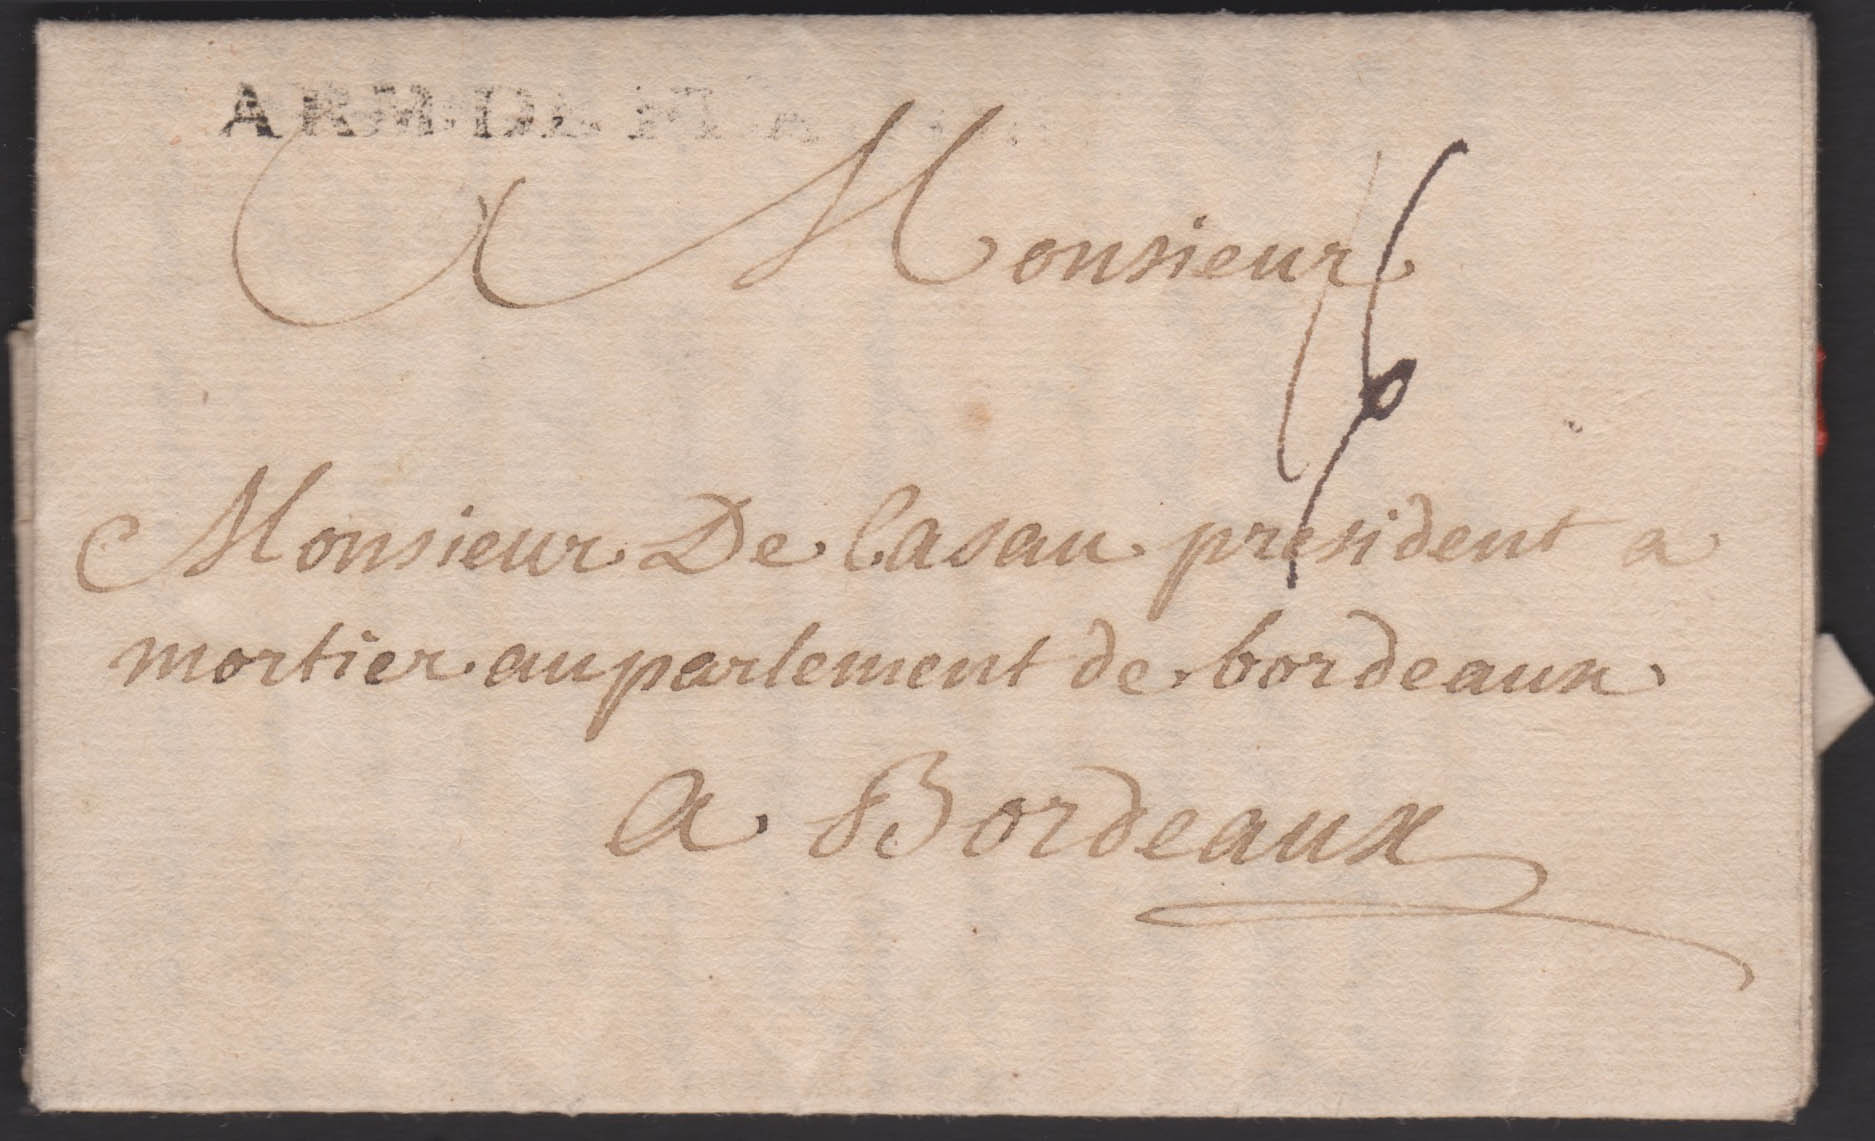 ARM DE FLA
Monsieur
16
Monsieur De Casau president a
mortier au parlement de bordeaux
a Bordeaux